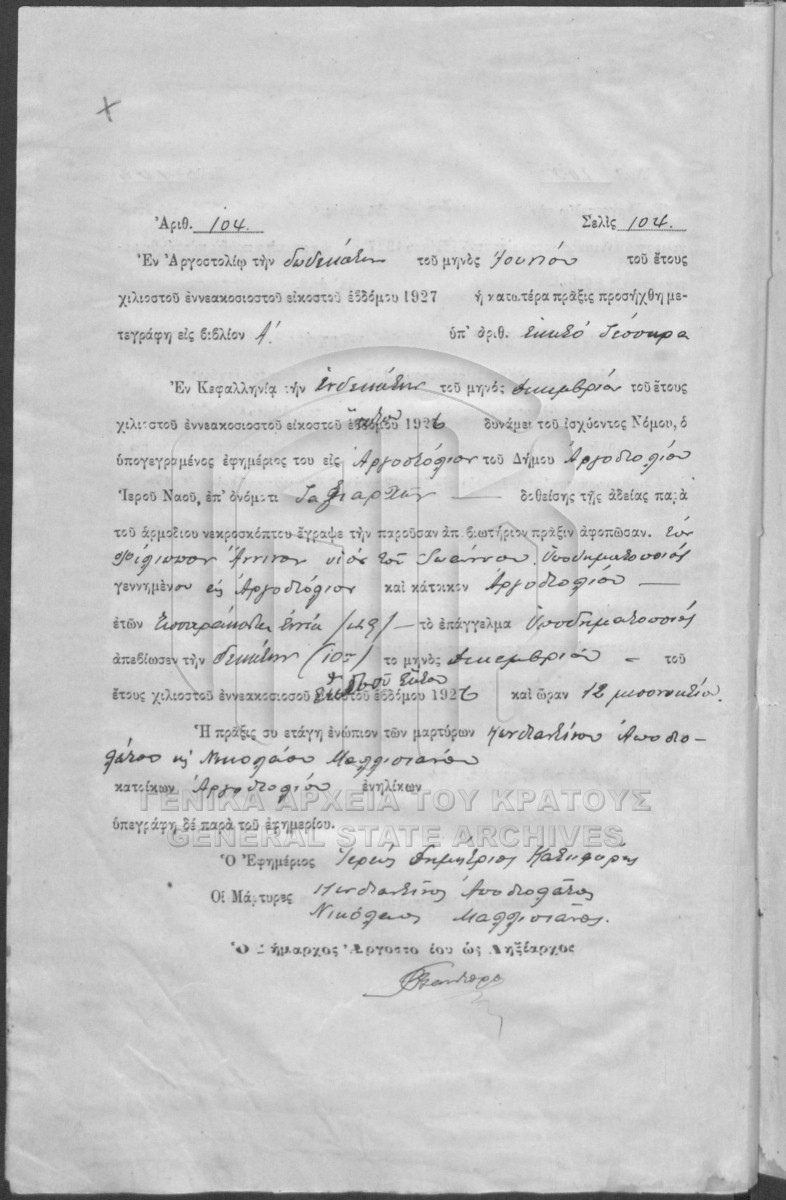 Ἀριθ. 104. Σελὶς 104.
Ἐν Ἀργοστολίῳ τὴν δωδεκάτην τοῦ μηνὸς Ἰουνίου τοῦ ἔτους
χιλιοστοῦ ἐννεακοσιοστοῦ εἰκοστοῦ ἑβδόμου 1927 ἡ κατωτέρα πρᾶξις προσήχθη με-
τεγράφη εἰς βιβλίον Α' ὑπ' ἀριθ. ἑκατὸ τέσσαρα
Ἐν Κεφαλληνίᾳ τὴν ἑνδεκάτην τοῦ μηνὸς Δεκεμβρίου τοῦ ἔτους
χιλιοστοῦ ἐννεακοσιοστοῦ εἰκοστοῦ ἕκτου 1926 δυνάμει τοῦ ἰσχύοντος Νόμου, ὁ
ὑπογεγραμένος ἐφημέριος του εἰς Ἀργοστόλιον τοῦ Δήμου Ἀργοστολίου
Ἱεροῦ Ναοῦ, ἐπ' ὀνόματι Ταξιαρχῶν δοθείσης τῆς ἀδείας παρὰ
τοῦ ἁρμοδιου νεκροσκόπτου ἔγραψε τὴν παροῦσαν ἀπ βιωτήριον πρᾶξιν ἀφοπῶσαν. τὸν
Φίλιππον Ἄννινον υἱὸς τοῦ Ἰωάννου. Ὑποδηματοποιὸς
γεννημένου εἰς Ἀργοστόλιον καὶ κάτοικον Ἀργοστολίου
ἐτῶν τεσσαράκοντα ἐννέα (49) τὸ ἐπάγγελμα Ὑποδηματοποιὸς
ἀπεβίωσεν τὴν δεκάτην (10ην) το μηνὸς Δεκεμβρίου τοῦ
ἔτους χιλιοστοῦ ἐννεακοσιοσοῦ εἰκοστοῦ ἕκτου ἑβδόμου 1926 καὶ ὥραν 12 μεσονυκτίου.
Ἡ πρᾶξις συ ετάγη ἐνώπιον τῶν μαρτύρων Κωνσταντίνου Ἀποστο-
λάτου κ Νικολάου Μαλλισιάνου
κατοίκων Ἀργοστολίου ἐνηλίκων
ὑπεγράφη δὲ παρὰ τοῦ ἐφημερίου.
ΓΕΝΙΚΑ ΑΡΧΕΙΑ ΤΟΥ ΚΡΑΤΟΥΣ
GENERAL STATE ARCHIVES
Ὁ Ἐφημέριος Ἱερεὺς Δημήτριος
Οἱ Μάρτυρες Κωνσταντῖνος Ἀποστολάτος
Νικόλαος Μαλλισιάνος.
Ὁ Δήμαρχος Ἀργοστο ίου ὡς Ληξίαρχος